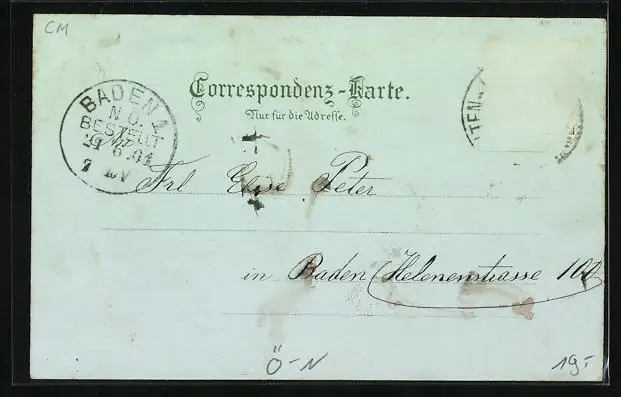 CM
Correspondenz-Karte.
Nur für die Adresse.
BADEN 1
N.Ö.
BESTELLT
6.01
7 IV
TTEN
Frl Else Peter
in Baden (Helenenstrasse 100
Ö-N
19.-